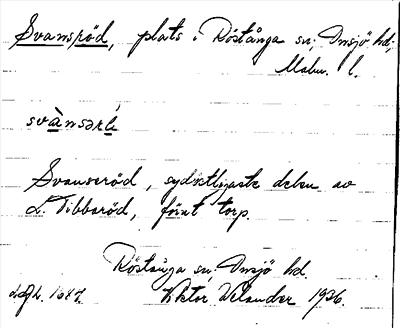 Svansröd, plats i Röstånga sn; Onsjö hd;
Malm. l.
svànsərö́
Svanseröd, sydöstligaste delen av
L. Tibbaröd, förut torp.
Röstånga sn; Onsjö hd.
Viktor Welander 1936.